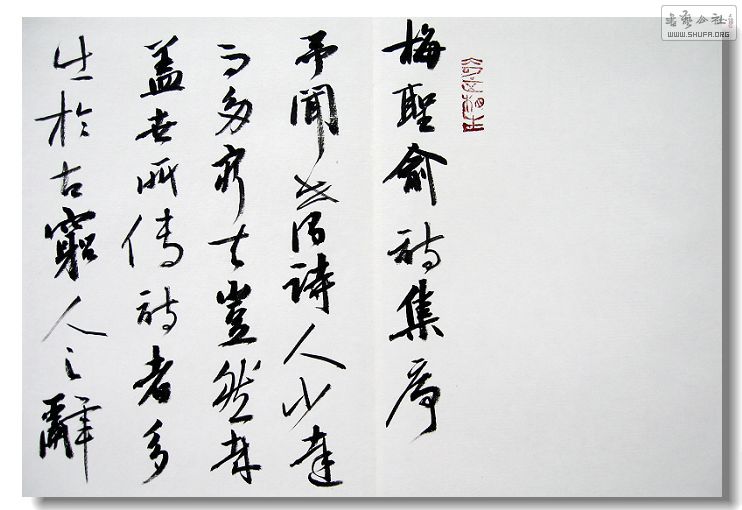 梅聖俞詩集序
予聞世謂詩人少達
而多窮夫豈然哉
蓋世所傳詩者多
出於古窮人之辭
WWW.SHUFA.ORG